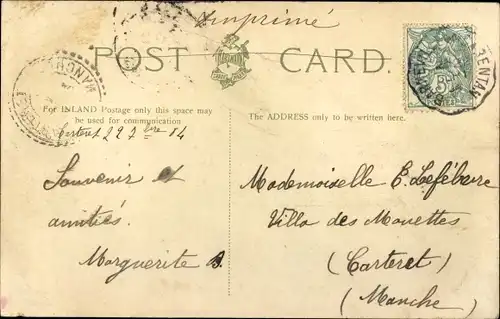 Imprimé
POST CARD.
For INLAND Postage only this space may
be used for communication
The ADDRESS only to be written here.
Souvenir et
amitiés.
Marguerite B.
Mademoiselle E. Lefébvre
Villa des Mouettes
(Carteret)
(Manche)